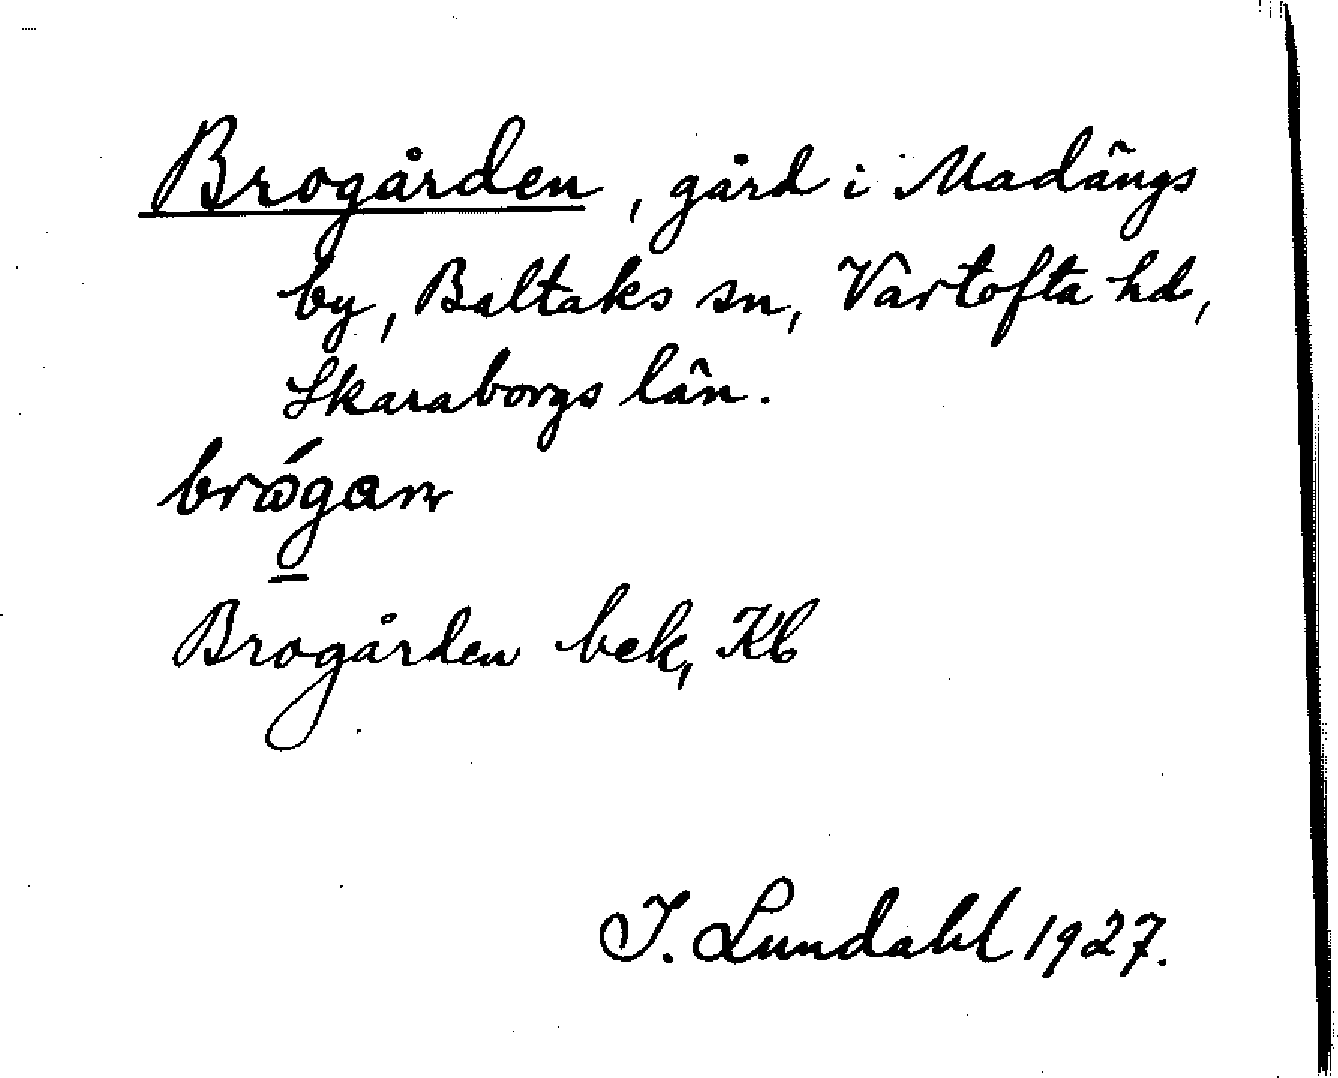 Brogården, gård i Madängs
by, Baltaks sn, Vartofta hd,
Skaraborgs län.
Brogården bek, Kb
I. Lundahl 1927.